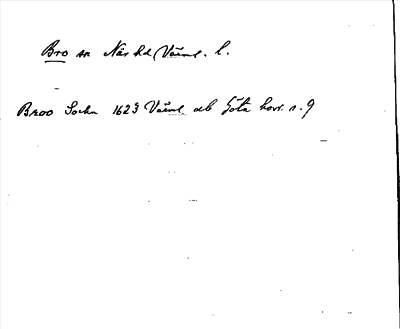 Bro sn Näs hd, Värml. l.
Broo Sockn 1623 Värml ab Göta hovr. s. 9